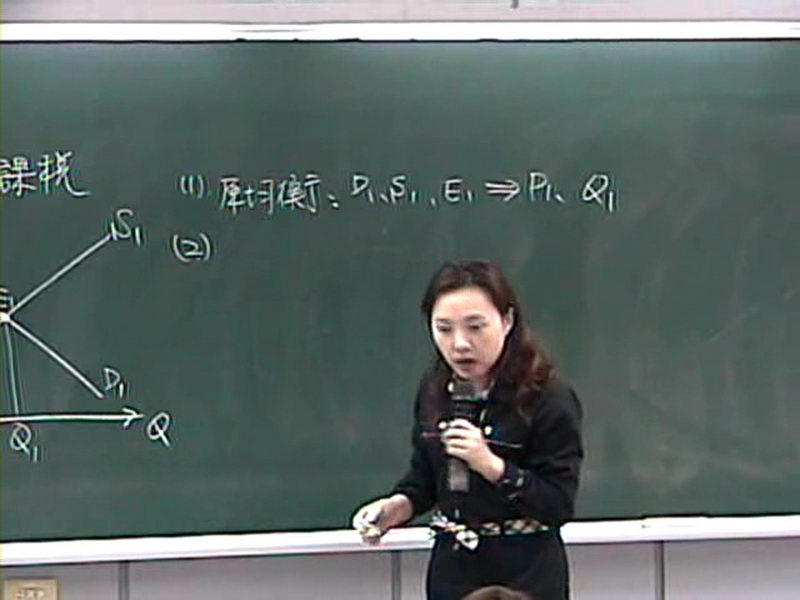 課稅
(1) 原均衡、D₁、S₁、E₁ ⇒ P₁、Q₁
(2)
S₁
E₁
D₁
Q₁
Q